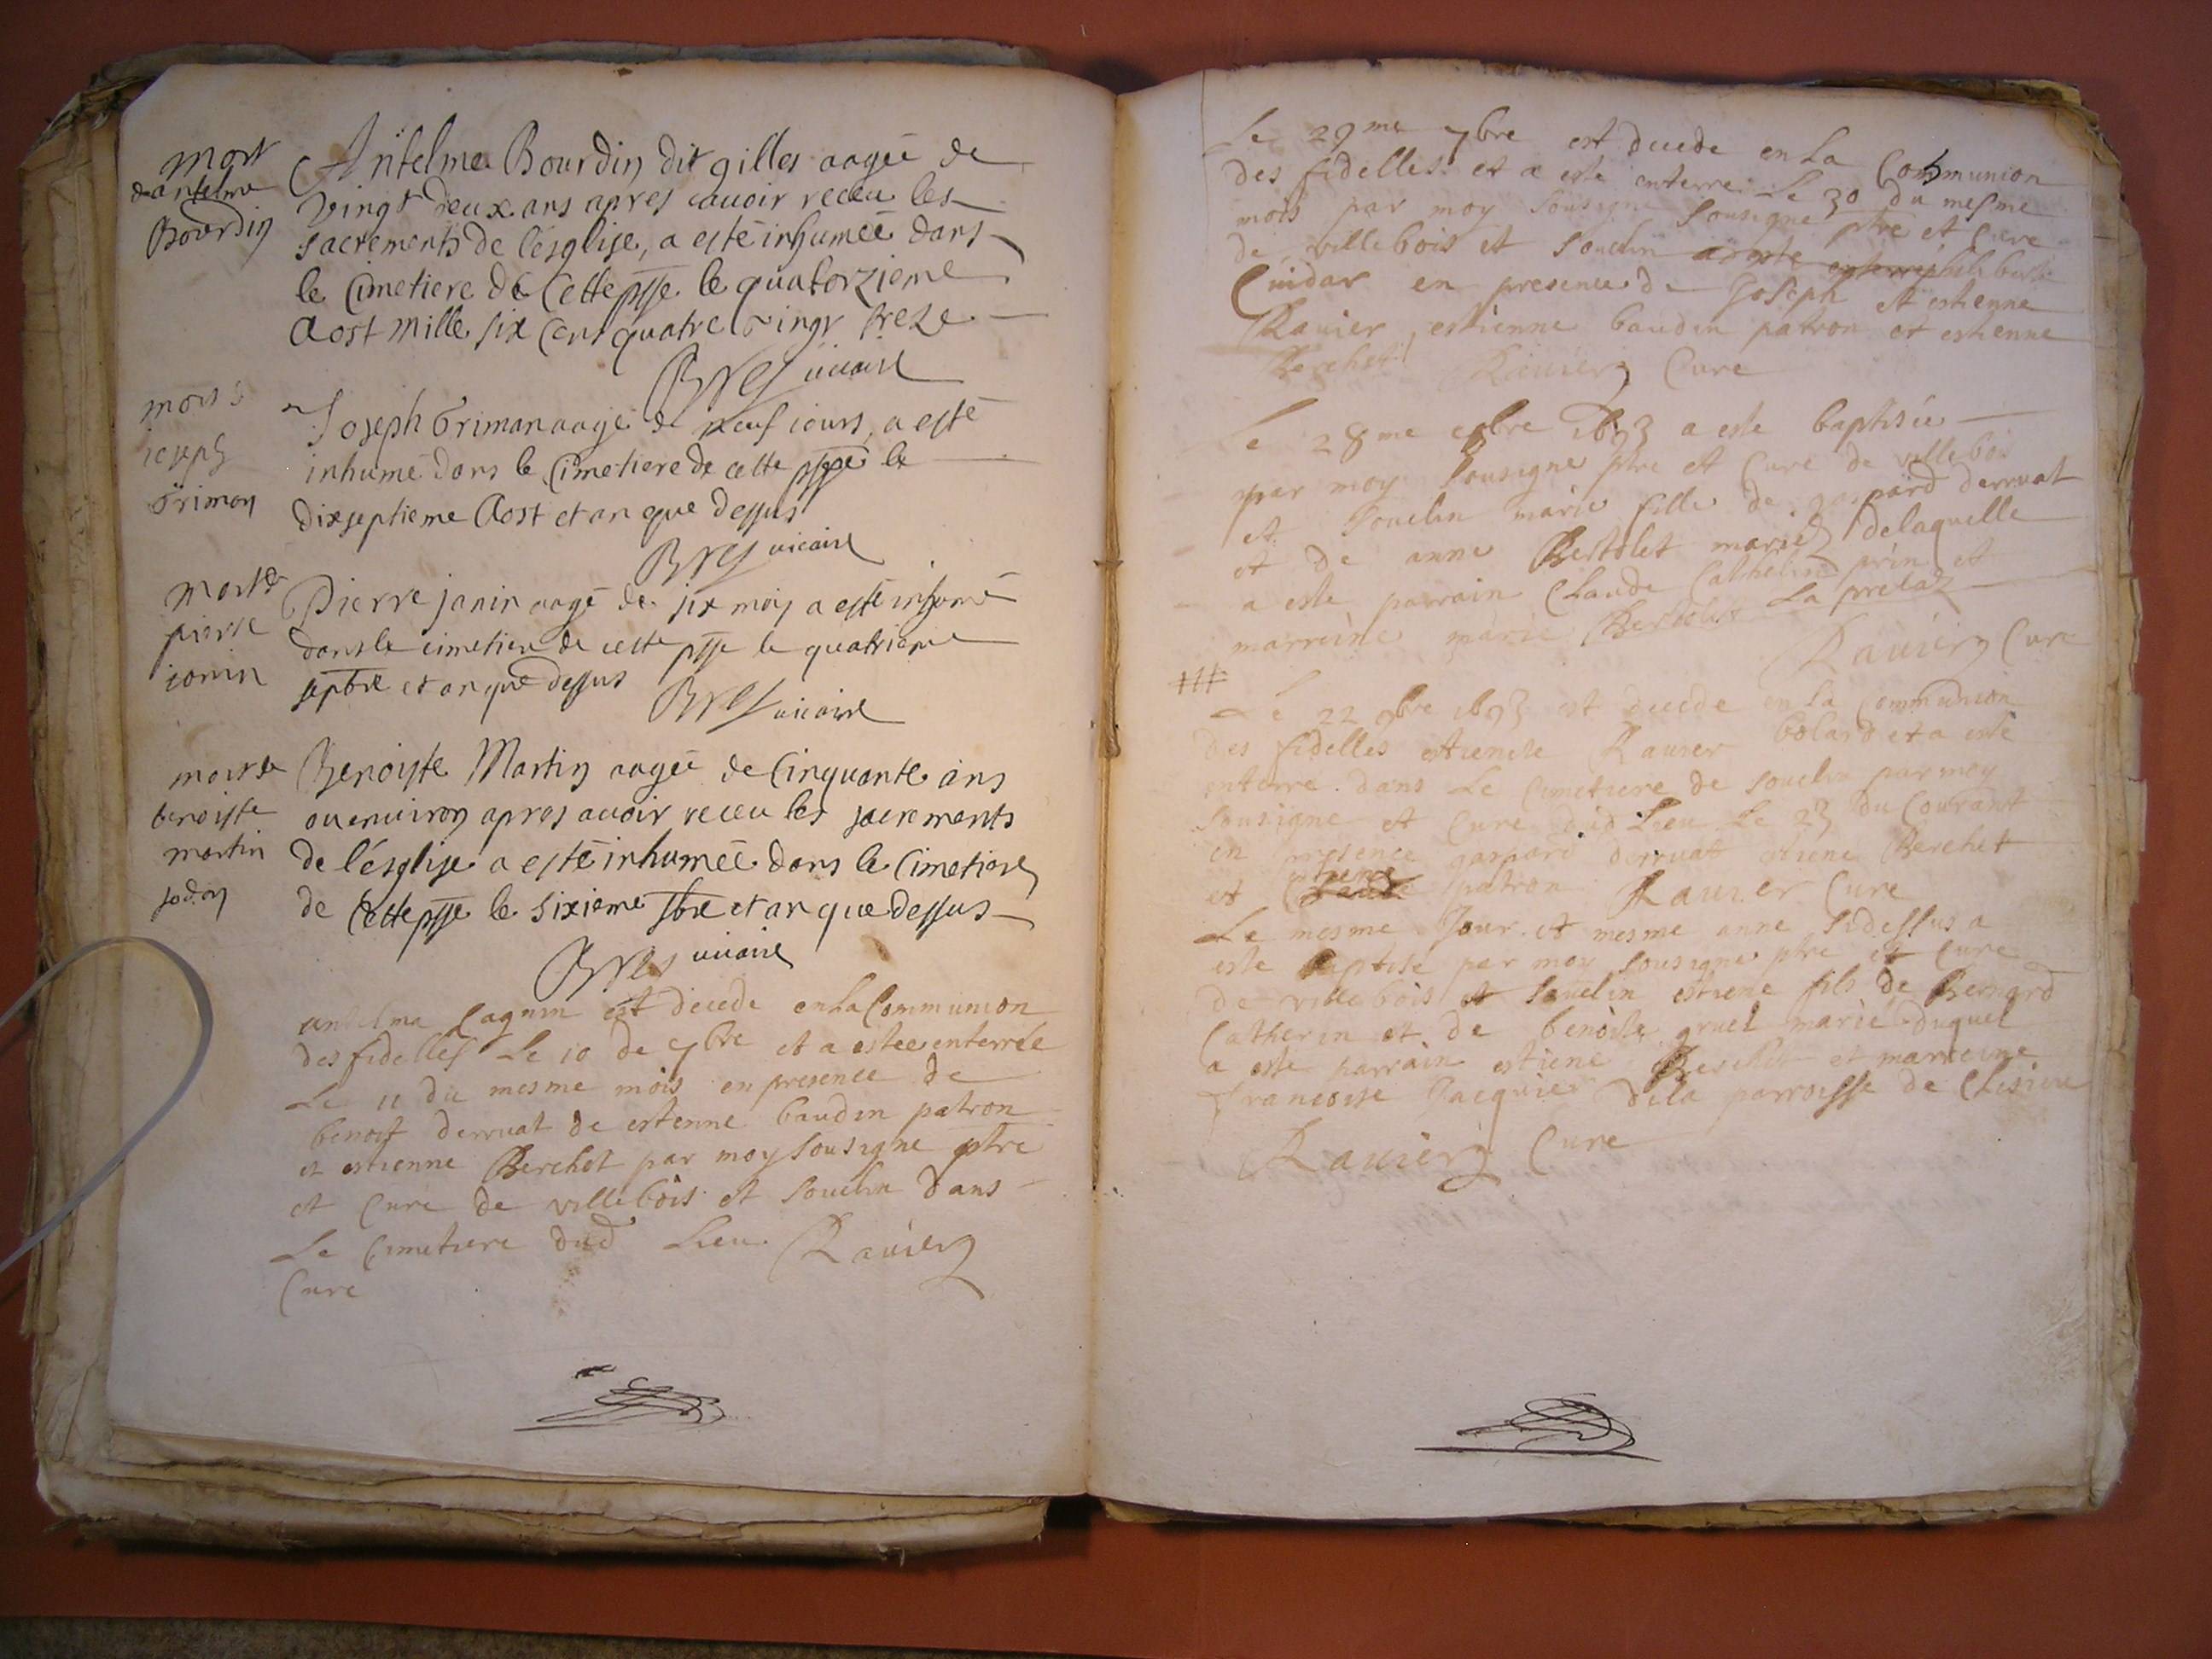 mort
d'antelma
Bourdin
Antelma Bourdin dit gilles aagée de
vingt deux ans apres avoir receu les
sacrements de l'ésglise, a esté inhumée dans
le Cimetiere de Cette psse le quatorzieme
Aost mille six cent quatre vingt treze
Bres vicaire
mort d
ioseph
Trimon
Joseph Triman aagé de neuf iours, a esté
inhumé dans le Cimetiere de cette psse le
dixseptieme Aost et an que dessus
Bres vicaire
mort de
pierre
ianin
Pierre janin aagé de six mois a esté inhumé
dans le cimetiere de cette psse le quatrieme
septbre et an que dessus
Bres vicaire
mort de
benoiste
martin
jodon
Benoiste Martin aagée de Cinquante ans
ou environ apres avoir receu les sacrements
de l'ésglise a esté inhumée dans le Cimetiere
de Cette psse le sixieme 7bre et an que dessus
Bres vicaire
antelma Cagnin est decede en La Communion
des fidelles Le 10 de 7bre et a estee enterrée
Le 11 du mesme mois en presence de
benoit derruat de estenne baudin patron
et estienne Berchet par moy sousigne ptre
et Cure de villebois et souclin dans
Le Cimetiere dud Lieu Ravier
Cure
Le 29me 7bre est decede en La Communion
des fidelles et a este enterre Le 30 du mesme
mois par moy sousigne sousigne ptre et Cure
de villebois et souclin a este enterre philiberte
Cuidar en presence de Joseph et estienne
Ravier, estienne baudin patron et estienne
Berchet Ravier Cure
Le 28me 1693 a este baptisée
par moy sousigne ptre et Cure de villebois
et souclin marie fille de gaspard derruat
et de anne Bertolet mariez delaquelle
a este parrain Claude Catherin prin et
marreine marie Bertolet La prelaz
Ravier Cure
Le 22 9bre 1693 est decede en La Communion
des fidelles estienne Ravier bolard et a esté
enterré dans Le Cimetiere de souclin par moy
sousigne et Cure dud Lieu Le 23 du Courant
en presence gaspard derruat etiene Berchet
et etiene patron Ravier Cure
Le mesme Jour et mesme anne sidessus a
este baptise par moy sousigne ptre et Cure
de villebois et souclin estiene fils de Bernard
Catherin et de benoite gruel marié duquel
a este parrain estiene Berchet et marreine
francoise Jacquier de la parroisse de Chisieu
Ravier Cure